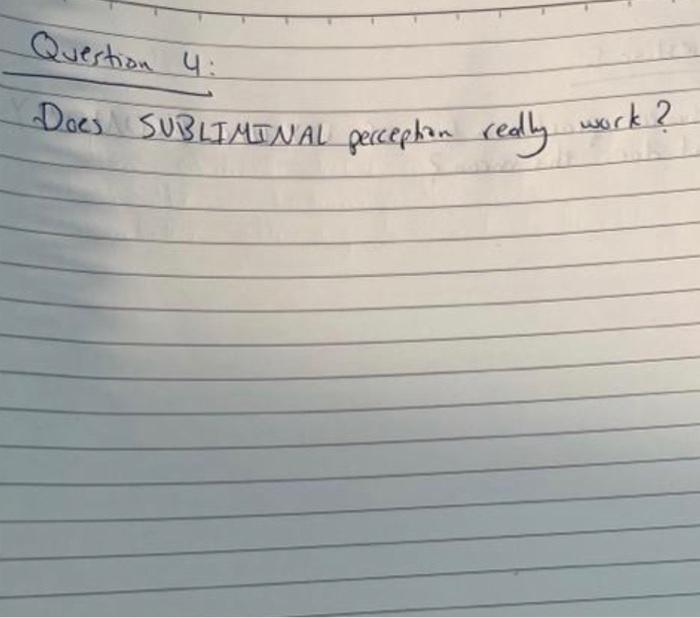 Question 4:
Does SUBLIMINAL perception really work?